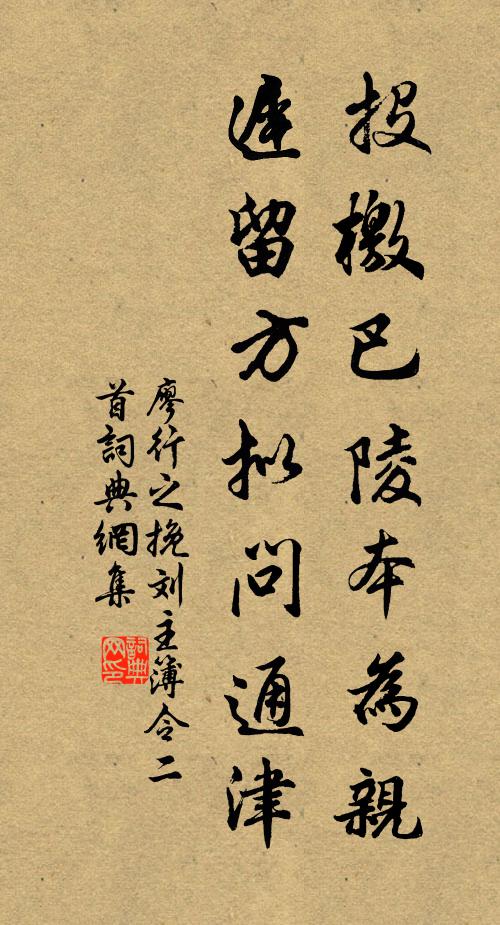 投檄巴陵本為親
遲留方拟問通津
廖行之挽刘主簿令二
首詞典網集
詞典网印